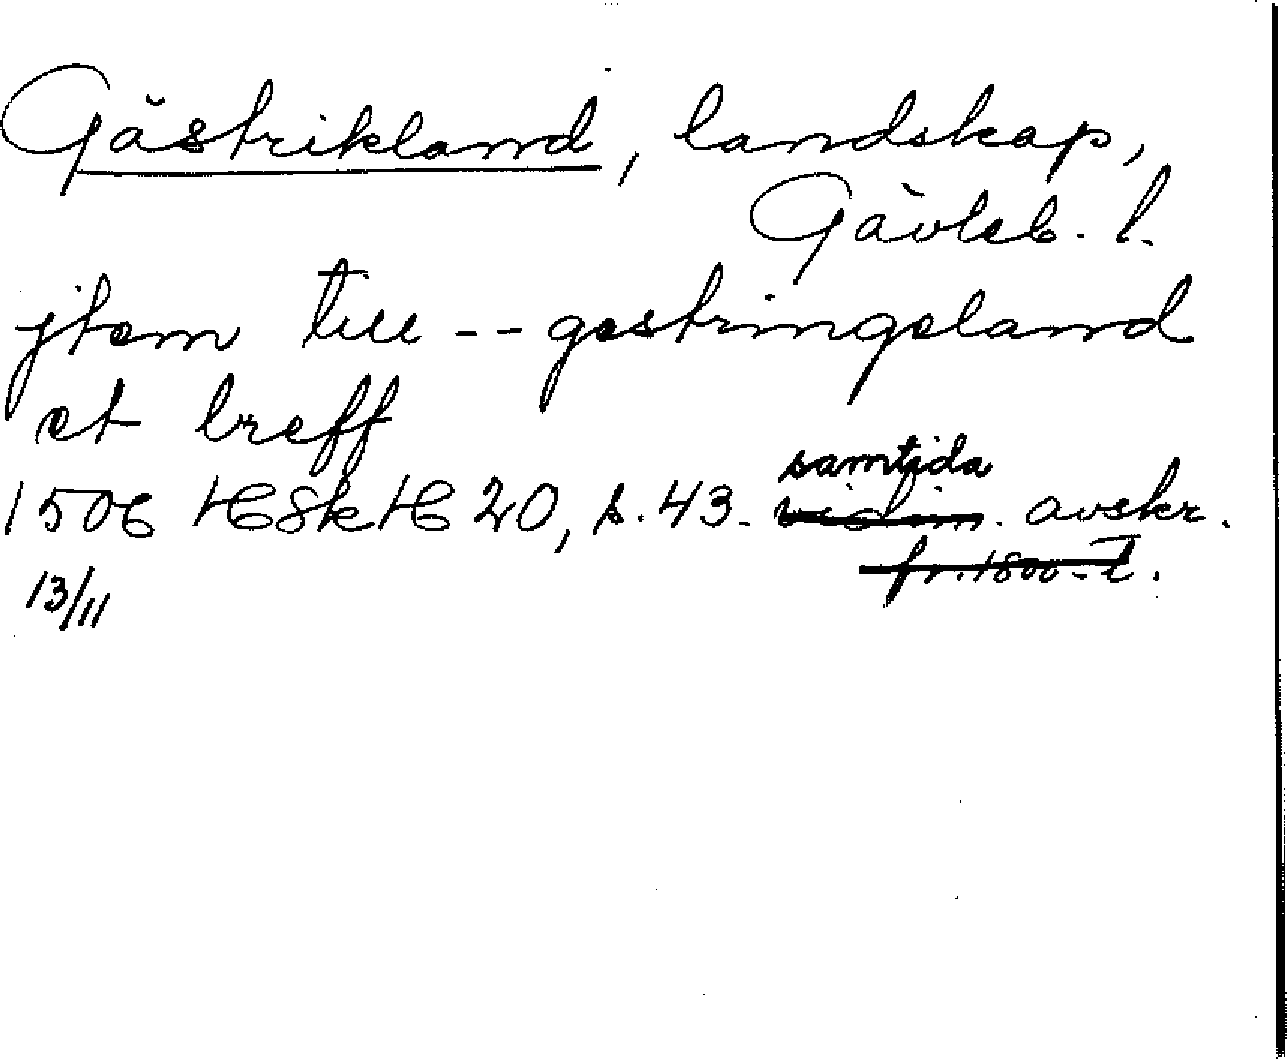 Gästrikland, landskap,
Gävleb. l.
jtem till -- gestringeland
et breff
1506 HSkH 20, s. 43. samtida vidim. avskr.
fr. 1800-t.
13/11